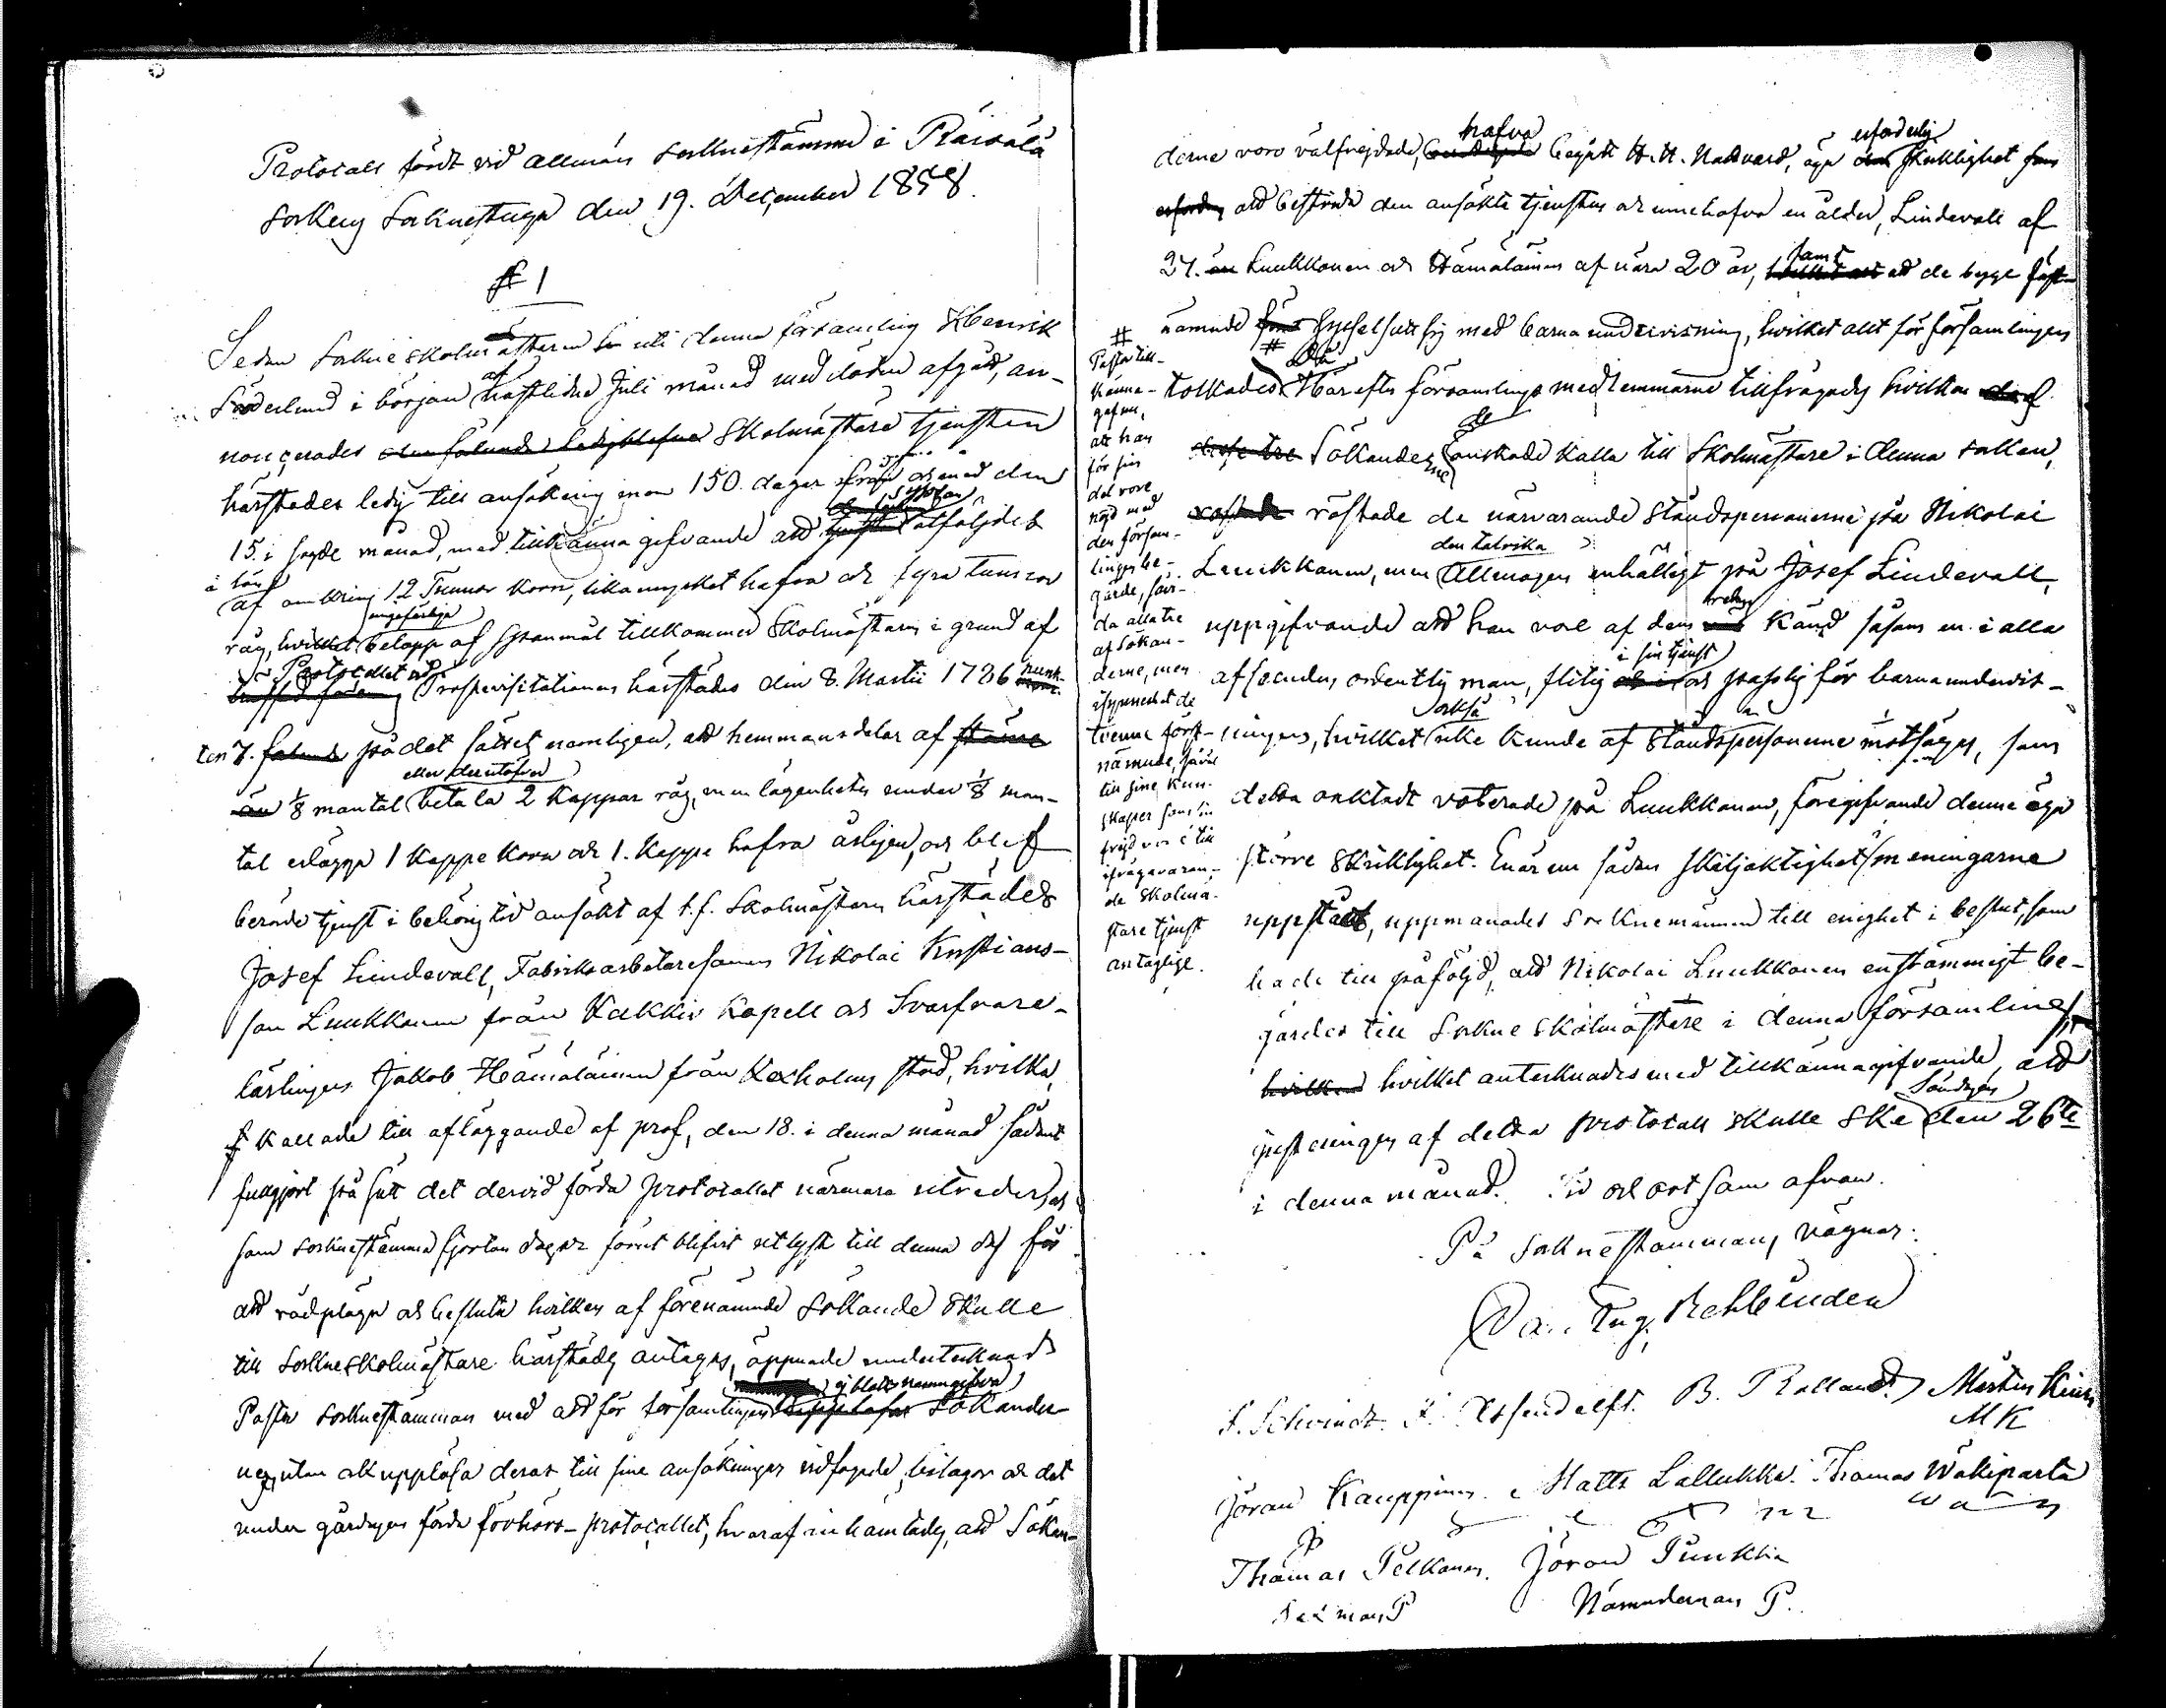 Protocoll fördt vid allmän Sockne stämma i Räisälä
Sockens Socknestuga den 19. December 1858.
§ 1
Sedan Sockneskolmästaren uti denna församling Henrik
Söderlund i början af sistlidne Juli månad med döden afgått, an-
noncerades Skolmästare tjensten
härstädes ledig till ansökning inom 150 dagar från och med den
15 i sagde månad, med tillkänna gifvande att sysslan åtföljdes
i lön
af omkring 12 Tunnor korn, lika mycket hafra och fyra tunnor
råg, hvilket ungefärliga belopp af spanmål tillkommer Skolmästaren i grund af
Protocollet vid Prosteivisitationen härstädes den 8. Martii 1786 punk-
ten 7. på det sättet nemligen, att hemmansdelar af
1/8 mantal eller derutöfver betala 2 Kappar råg, men lägenheter under 1/8 man-
tal erlägga 1 Kappe Korn och 1. Kappe hafra årligen, och blef
berörde tjenst i behörig tid ansökt af t.f. Skolmästaren härstädes
Josef Lindevall, Fabriksarbetaresonen Nikolai Kristians-
son Luukkonen från Kakkis Kapell och Svarfvare-
lärlingen Jakob Hämäläinen från Kexholms stad, hvilka,
kallade till afläggande af prof, den 18. i denna månad sådant
fullgjort på sätt det dervid förda protocollet närmare utreder, och
som Socknestämma fjorton dagar förut blifvit utlyst till denna dag för
att rådpläga och besluta hvilken af förenämnde Sökande skulle
till Sockneskolmästare härstädes antagas, öppnade undertecknad
Pastor Socknestämman med att för församlingen ej blott namngifva Sökander-
ne, utan ock uppläsa deras till sine ansökningar vidfogade bilagor och det
under gårdagen förda förhörs-protocollet, hvaraf inhämtades, att Sökan-
derne voro välfrejdade, hafva begått H. H. Nattvard, äga erforderlig skicklighet
att bestrida den ansökte tjensten och innehafva en ålder, Lindevall af
24. Luukkonen och Hämäläinen af nära 20 år, samt att de begge först-
nämnde sysselsatt sig med barna undervisning, hvilket allt för församlingen
tolkades. # Då Härefter församlings medlemmarne tillfrågades hvilken af
de Sökanderne önskade kalla till Skolmästare i denna socken,
röstade de närvarande Ståndspersonerne på Nikolai
Luukkonen, men den talrika Allmogen enhälligt på Josef Lindevall,
uppgifvande att han vore af dem känd såsom en i alla
afseenden ordentlig man, flitig i sin tjenst och passlig för barnaundervis-
ningen, hvilket också icke kunde af Ståndspersonerne motsägas, som
detta oaktadt voterade på Luukkonen, föregifvande denne äga
större Skicklighet. Enär en sådan skiljaktighet i meningarne
uppstått, uppmanades Socknemännen till enighet i beslut, som
hade till påföljd, att Nikolai Luukkonen enstämmigt be-
gärdes till Sockne skolmästare i denna församling,
hvilket antecknades med tillkännagifvande, att
justeringen af detta protocoll skulle ske Söndagen den 26te
i denna månad. Tid och ort som ofvan.
På Socknestämmans vägnar:
# Pastor till-
känna-
gifver,
att han
för sin
del vore
nöjd med
den försam-
lingen be-
gärde, så-
da alla tre
af Sökan-
derne, men
isynnerhet de
tvenne först-
nämnde, såväl
till sine kun-
skaper som sin
frejd voro till
ifrågavaran-
de Skolmä-
stare tjenst
antaglige.
Aug. Rehbinder
F. Schvindt. B. Rolland. Mårten
MK
Jöran Kauppinen. Matts Lallukka. Thomas Wäkiparta
Thomas Pelkonen. Jöran Punkkin
Nämndeman P.